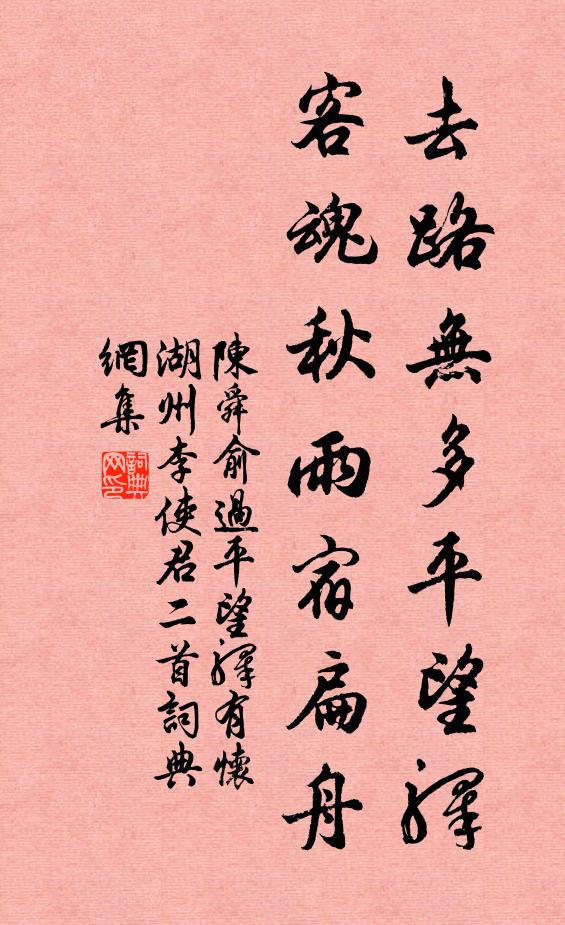 去路無多平望驛
客魂秋雨宿扁舟
陳舜俞過平望驛有懷
湖州李使君二首詞典
網集
詞典網印